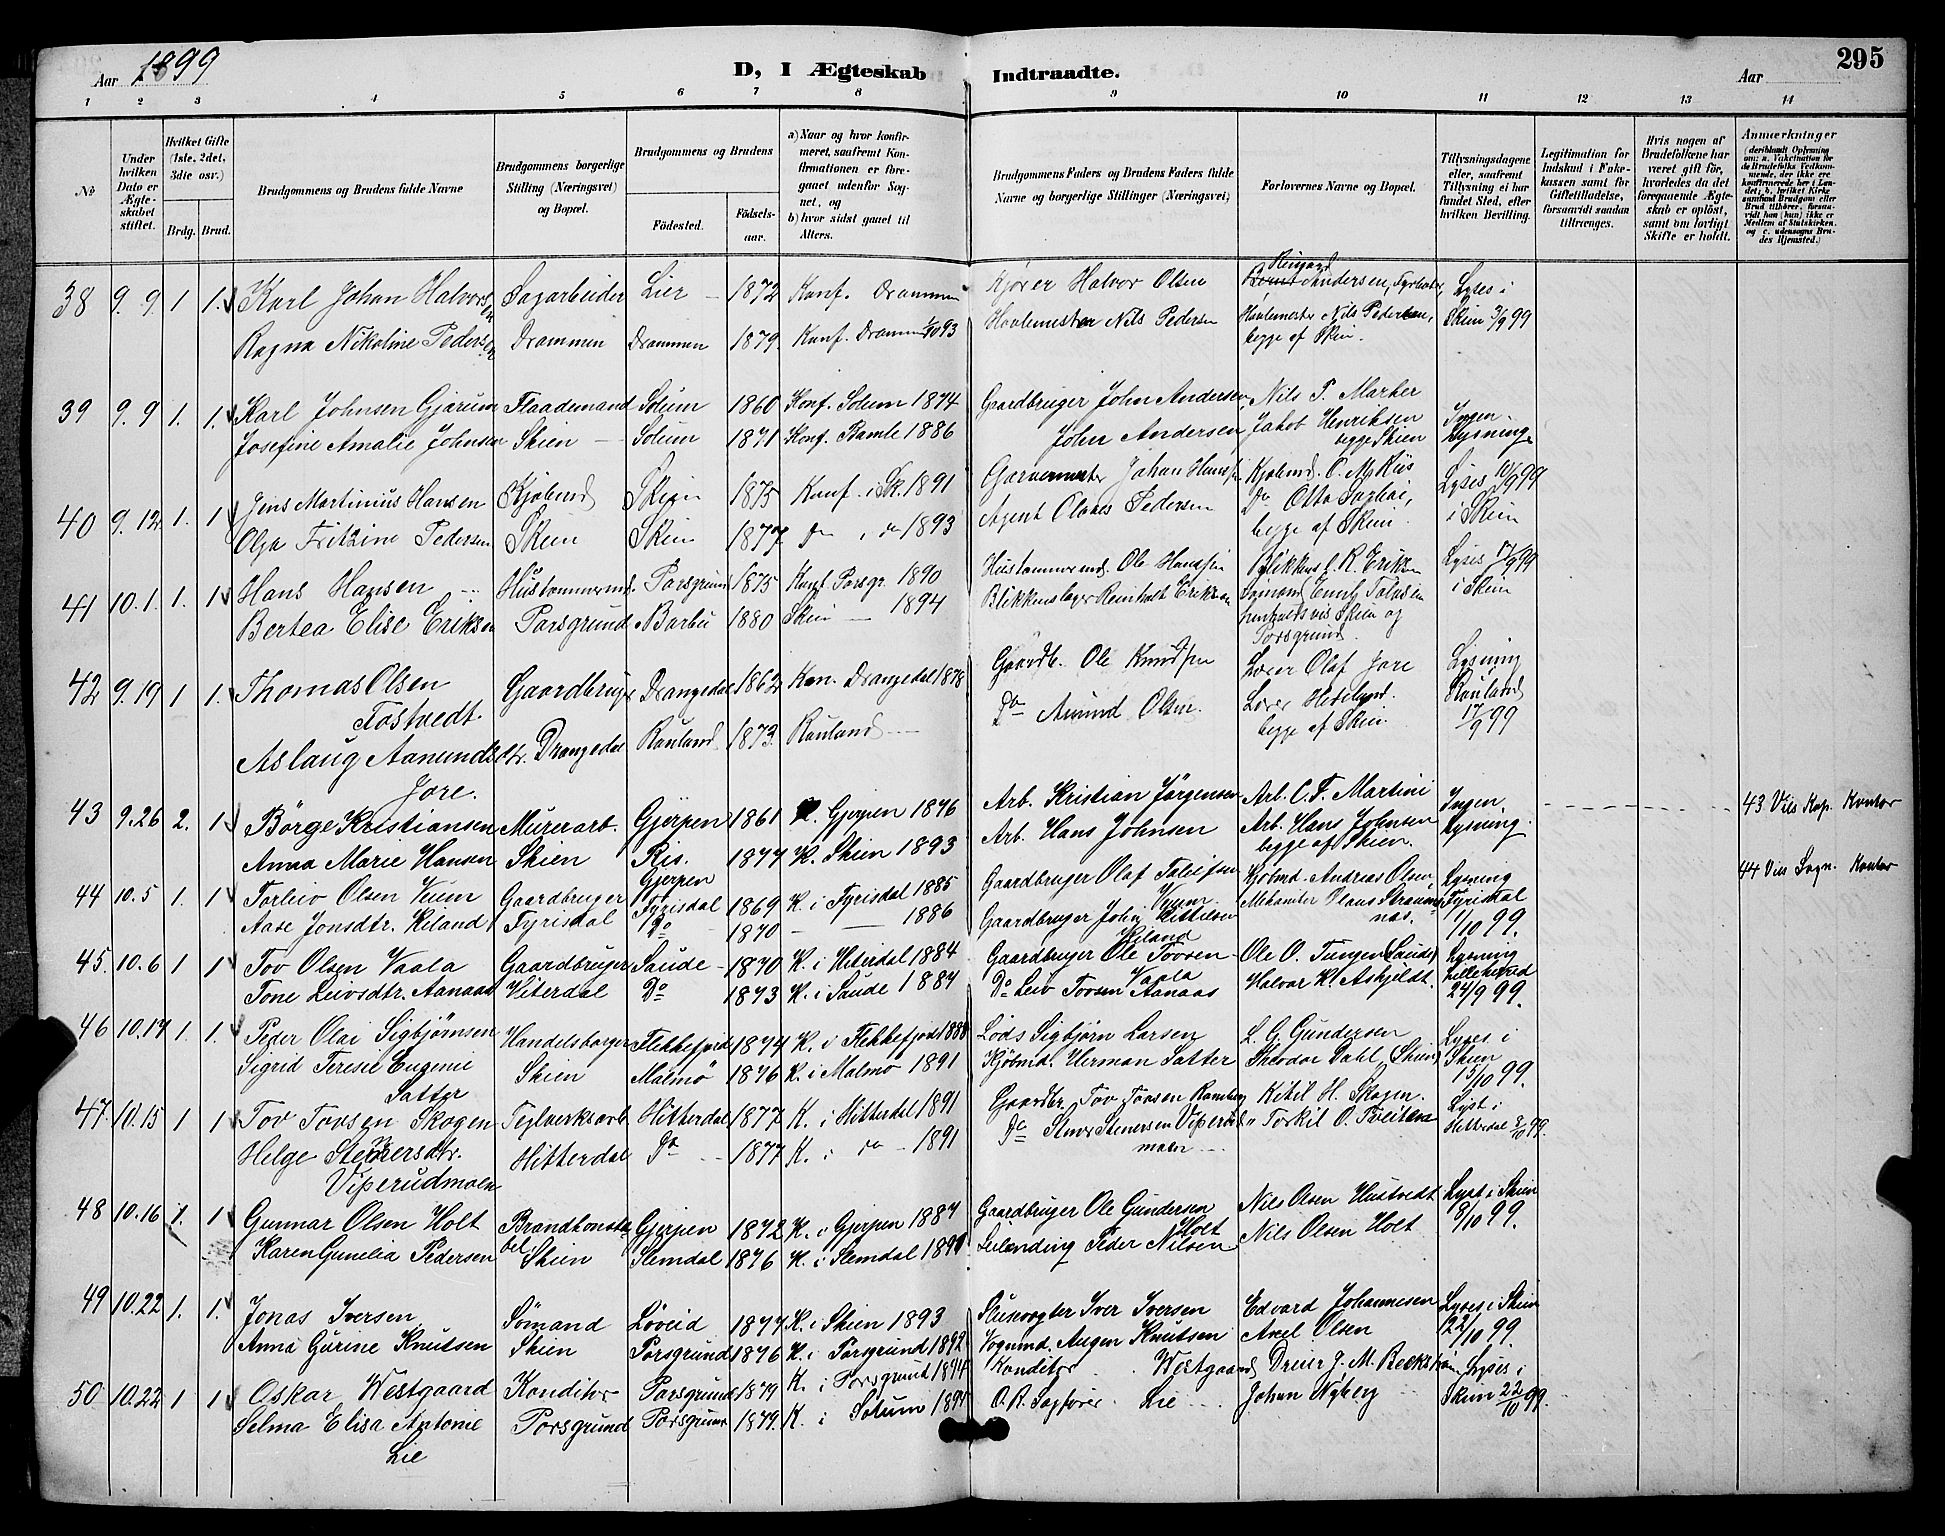 Aar 1899
D, I Ægteskab Indtraadte.
Aar
295
1 2 3 4 5 6 7 8 9 10 11 12 13 14
No
Under hvilken Dato er Ægteskabet stiftet.
Hvilket Gifte (1ste, 2det, 3die osv.)
Brdg. Brud.
Brudgommens og Brudens fulde Navne
Brudgommens borgerlige Stilling (Næringsvei) og Bopæl.
Brudgommens og Brudens
Fødested. Fødselsaar.
a) Naar og hvor konfirmeret, saafremt Konfirmationen er foregaaet udenfor Sognet, og
b) hvor sidst gaaet til Alters.
Brudgommens Faders og Brudens Faders fulde Navne og borgerlige Stillinger (Næringsvei)
Forlovernes Navne og Bopæl.
Tillysningsdagene eller, saafremt Tillysning ei har fundet Sted, efter hvilken Bevilling.
Legitimation for Indskud i Enkekassen samt for Giftetilladelse, forsaavidt saadan tiltrænges.
Hvis nogen af Brudefolkene har været gift før, hvorledes da det foregaaende Ægteskab er opløst, samt om lovligt Skifte er holdt.
Anmærkninger (deriblandt Oplysning om: a. Vakcination for de Brudefolks Vedkommende, der ikke ere konfirmerede her i Landet; b. hvilket Kirkesamfund Brudgom eller Brud tilhører, forsaavidt han (hun) ikke er Medlem af Statskirken, og c. udensogns Brudes Hjemsted.)
38 9. 9. 1 1. Karl Johan Halvorsen Sagarbeider Lier 1872 Konf. Drammen Kjører Halvor Olsen Andersen, Lyses i
Ragna Nikoline Pedersen Drammen Drammen 1879. Konf. Drammen 1/10 93 Høvlemester Nils Pedersen Høvlemester Nils Pedersen, begge af Skien. Skien 3/9 99
39 9. 9 1. 1. Karl Johnsen Gjærum Flaademand Solum 1860 Konf. Solum 1874 Gaardbruger John Andersen Nils P. Marker Ingen
Josefine Amalie Johnsen Skien Solum 1871 Konf. Bamle 1886 John Andersen Jakob Henriksen begge Skien Lysning
40 9. 12 1. 1 Jens Martinius Hansen Kjøbmd Skien 1875 Konf. i Sk. 1891 Garvermester Johan Hanssen Kjøbmd. C. M. Lyses 10/9 99
Olga Fritzine Pedersen Skien Skien 1877 Do i do 1893 Agent Olaves Pedersen Do Otto begge af Skien. i Skien
41 10. 1. 1. 1 Hans Hansen Hustømmermd. Porsgrund 1875 Konf. Porsgr. 1890 Hustømmermd. Ole Hanssen Blikkensl. R. Eriksen Lyses 17/9 99
Bertea Elise Eriksen Porsgrund Barbu 1880 Skien 1894 Blikkenslager Reinholt Eriksen Sømand henholdsvis Skien og Porsgrund. i Skien
42 9. 19 1 1. Thomas Olsen Tostvedt. Gaardbruger Drangedal 1862 Kon. Drangedal 1878 Gaardb. Ole Knudsen Olaf Jore Lysning Rauland
Aslaug Aanundsdtr. Jore. Drangedal Rauland 1873. Rauland Do Aanund Olsen. begge af Skien. 17/9 99
43 9. 26 2. 1 Börge Kristiansen Murerarb. Gjerpen 1861 K. Gjerpen 1876 Arb. Kristian Jörgensen Arb. C. F. Martini Ingen 43 Vils Kap. Kontor
Anna Marie Hansen Skien Ris. Gjerpen 1877 K. Skien 1893 Arb. Hans Johnsen Arb. Hans Johnsen begge af Skien. Lysning.
44 10. 5 1. 1 Torleiv Olsen Veum Gaardbruger Fyrisdal 1869 K. i Fyrisdal 1885 Gaardbruger Olaf Veum Kjøbmd. Andreas Olsen, Lysning 44 Viis Sogn. Kontor
Aase Jonsdtr. Kiland Fyrisdal Do 1870 1886 Gaardbruger John Kittelsen Kiland Fyrisdal 1/10 99.
45. 10. 6 1 1 Tov Olsen Vaala Gaardbruger Saude 1870 K. i Hiterdal 1884 Gaardbruger Ole Tovsen Vaala Ole O. Tungen (Saude) Lysning
Tone Leivsdtr. Aanaas Hiterdal Do 1873 K. i Saude 1887 Do Leiv Tovsen Aanaas Halvor K. Askjildt. 24/9 99.
46 10. 14 1. 1. Peder Olai Sigbjørnsen Handelsborger Flekkefjord 1874 K. i Flekkefjord 1888 Lods Sigbjørn Larsen L. G. Gundersen Lyses i
Sigrid Teresie Eugenie Satter Skien Malmö 1876 K. i Malmö 1891 Kjöbmd. Herman Satter Theodor Dahl (Skien) Skien 15/10 99.
47. 10. 15 1 1 Tov Tovsen Skogen Teglverksarb. Hitterdal 1877 K. i Hitterdal 1891 Gaardbr. Tov Tovsen Kitil H. Skogen. Lyst i
Helge Stenersdtr. Viperudmoen Hitterdal Do 1877 K. i do 1891 Do Stener Stenersen Viperudmoen Torkil O. Hitterdal 8/10 99.
48 10. 16 1. 1 Gunnar Olsen Holt Brandkonstabel Gjerpen 1872 K. i Gjerpen 1887 Gaardbruger Ole Gundersen Holt Nils Olsen Hustvedt Lyst i Skien
Karen Gunelia Pedersen Skien Slemdal 1876 K. i Slemdal 1891 Leilending Peder Nilsen Nils Olsen Holt 8/10 99.
49 10. 22 1. 1. Jonas Iversen Sömand Löveid 1877 K. i Skien 1893 Slusevogter Iver Iversen Edvard Johannesen Lyses i Skien
Anna Gurine Knutsen Skien Porsgrund 1876 K. i Porsgrund 1892 Vognmd. Augen Knutsen Axel Olsen 22/10 99.
50 10. 22 1 1 Oskar Westgaard Konditor Porsgrund 1879 K. i Porsgrund 1894 Konditor Westgaard Dreier J. M. Lyses i
Selma Elisa Antonie Lie Porsgrund Porsgrund 1879. K. i Solum 1894 O. R. Sagfører Lie Johan Nyberg Skien 22/10 99.